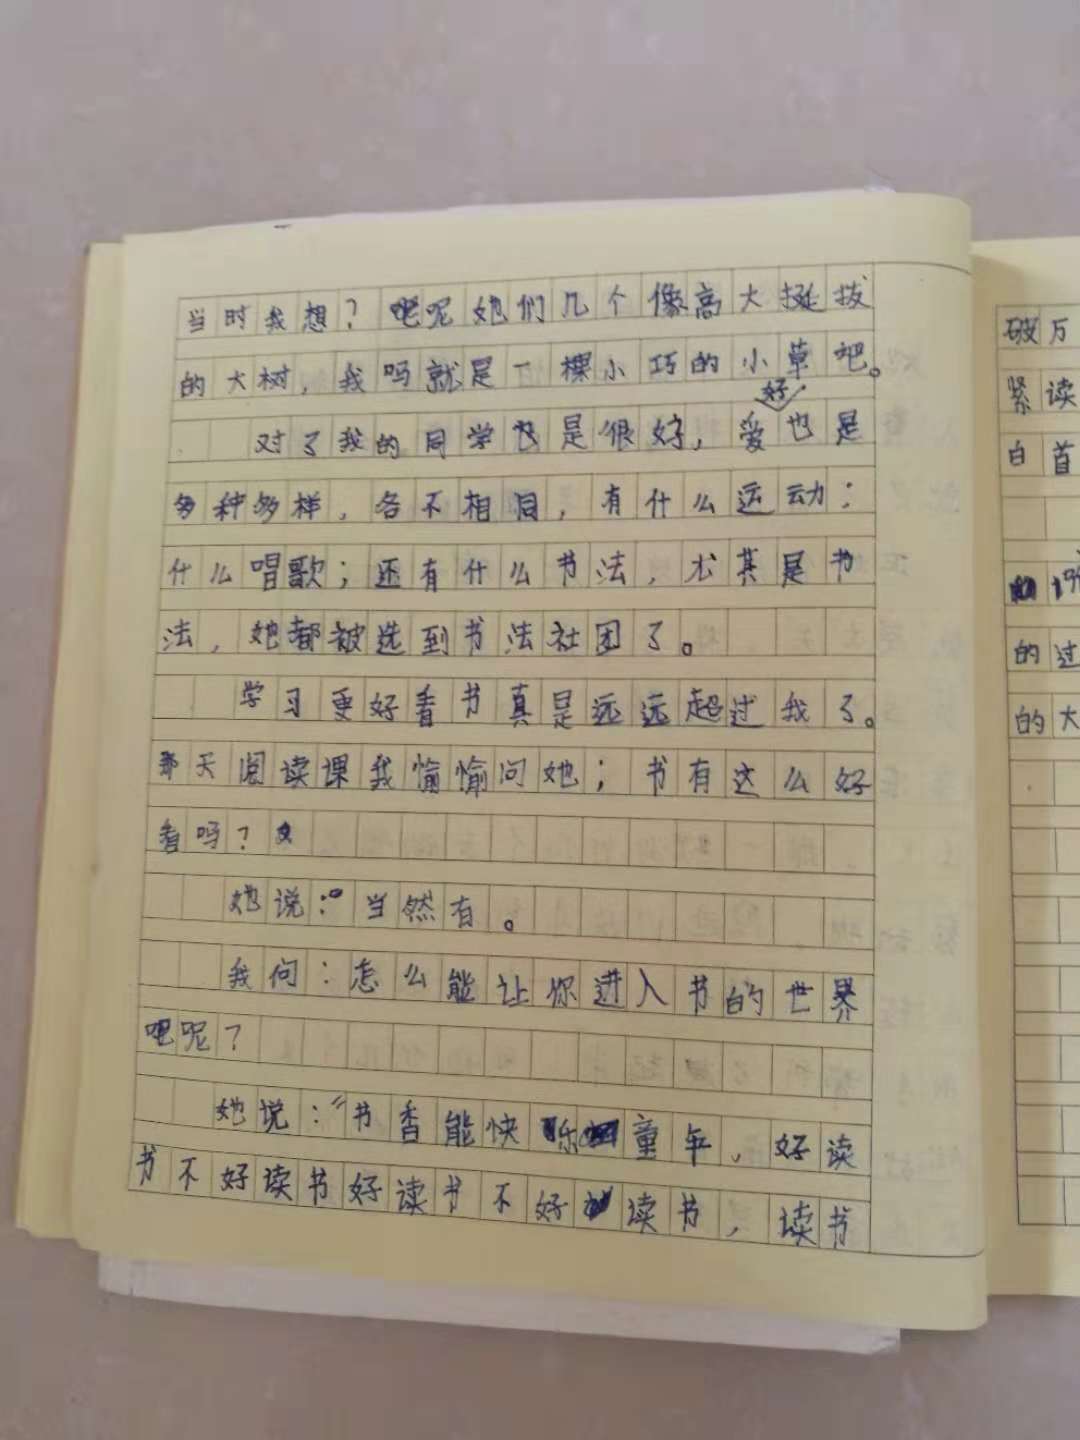 当时我想？呢她们几个像高大挺拔
的大树，我吗就是一棵小巧的小草吧。
对了我的同学也是很好，爱好也是
多种多样，各不相同，有什么运动；
什么唱歌；还有什么书法，尤其是书
法，她都被选到书法社团了。
学习更好看书真是远远超过我了。
那天阅读课我愉愉问她；书有这么好
看吗？
她说：当然有。
我问：怎么能让你进入书的世界
呢？
她说：“书香能快乐童年，好读
书不好读书好读书不好读书，读书
破万
紧读
白首
的过
的大